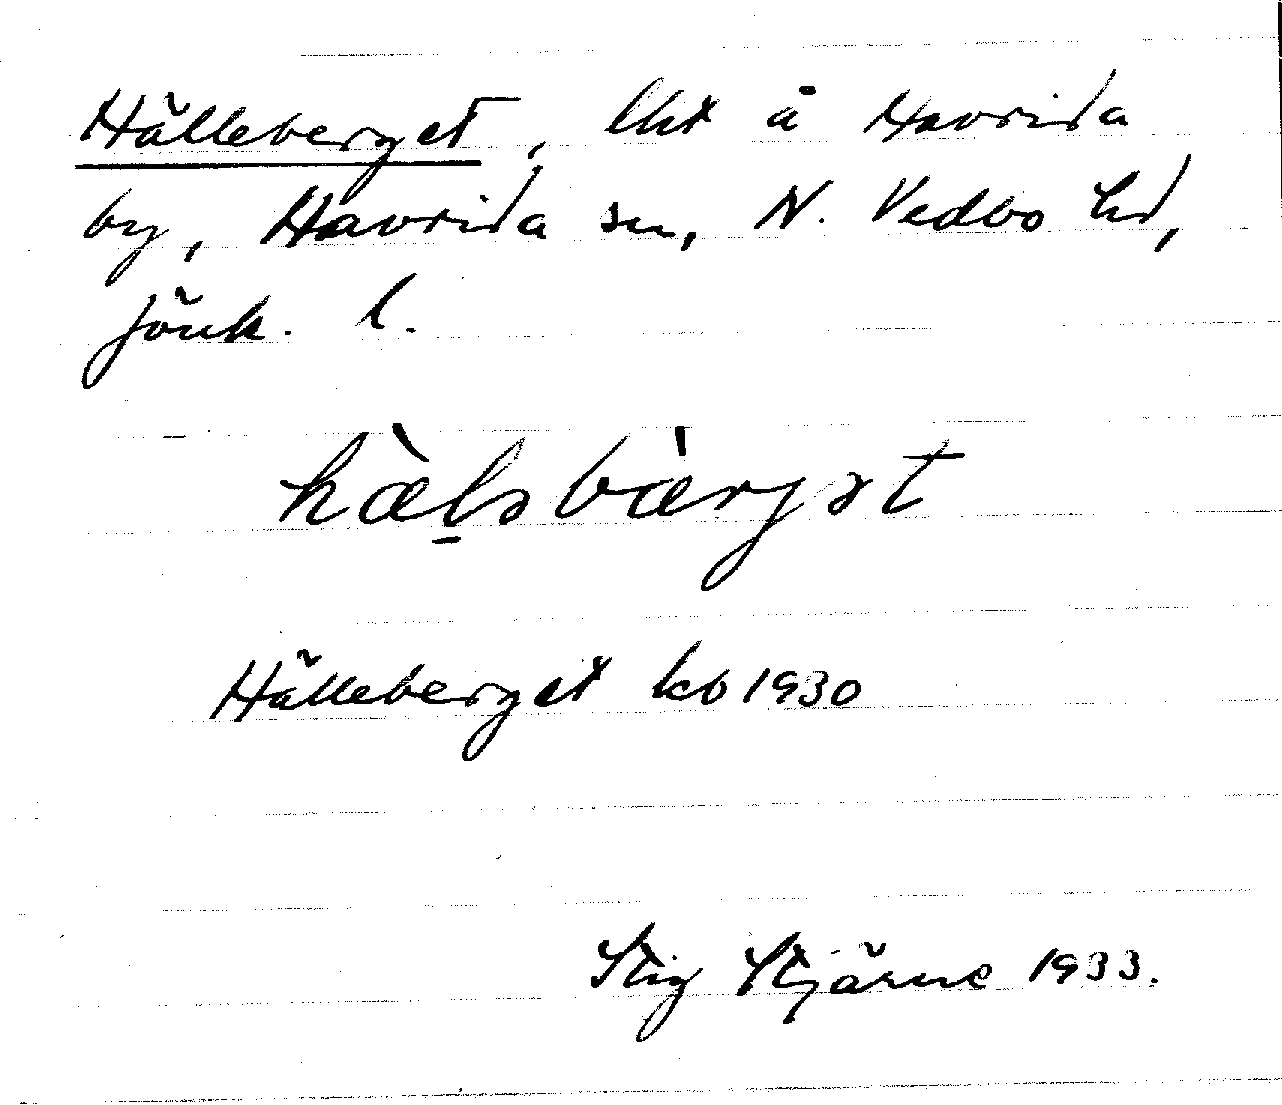 Hälleberget, lht å Haurida
by, Haurida sn, N. Vedbo hd,
Jönk. l.
hæ̀ləbærjət
Hälleberget kb 1930
Stig Stjärne 1933.